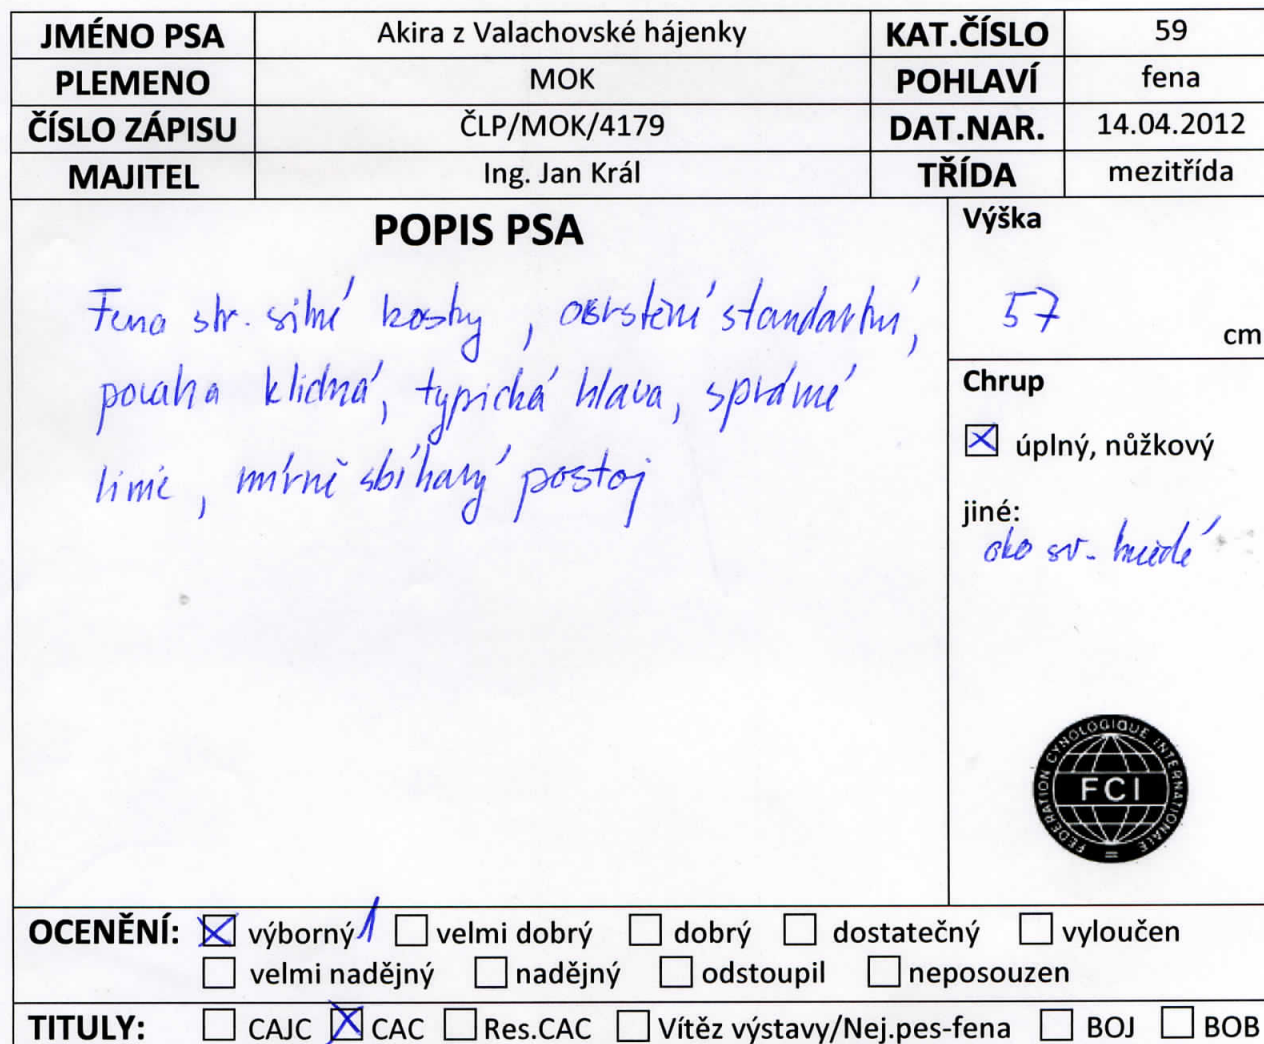 JMÉNO PSA Akira z Valachovské hájenky KAT.ČÍSLO 59
PLEMENO MOK POHLAVÍ fena
ČÍSLO ZÁPISU ČLP/MOK/4179 DAT.NAR. 14.04.2012
MAJITEL Ing. Jan Král TŘÍDA mezitřída
POPIS PSA
Fena stř. silné kostry, osrstění standartní,
povaha klidná, typická hlava, správné
linie, mírně sbíhavý postoj
Výška
57 cm
Chrup
úplný, nůžkový
jiné:
oko sv. hnědé
FEDERATION CYNOLOGIQUE INTERNATIONALE
FCI
OCENĚNÍ: výborný 1 velmi dobrý dobrý dostatečný vyloučen
velmi nadějný nadějný odstoupil neposouzen
TITULY: CAJC CAC Res.CAC Vítěz výstavy/Nej.pes-fena BOJ BOB